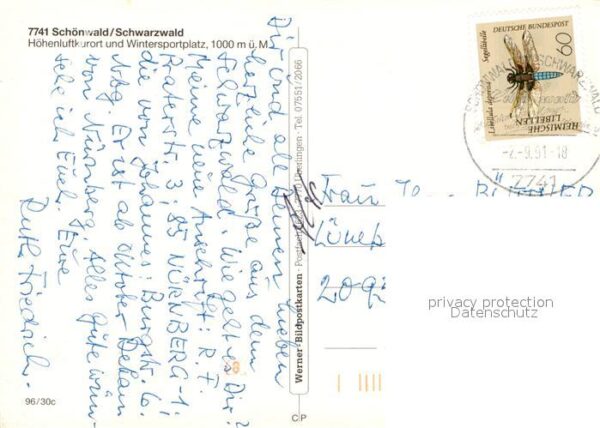 7741 Schönwald/Schwarzwald
Höhenluftkurort und Wintersportplatz, 1000 m ü. M.
Dir und all Deinen Lieben
herzliche Grüße aus dem
Schwarzwald. Wie geht es Dir?
Meine neue Anschrift: R. F.
Praterstr. 3, 85 NÜRNBERG-1;
die von Johannes: Burgstr. 6.
Nbg. Er ist ab Oktober Dekan
von Nürnberg. Alles Gute wün-
sche ich Euch. Eure
Ruth Friedrich.
Werner-Bildpostkarten · Überlingen · Tel. 07551/2066
DEUTSCHE BUNDESPOST
60
Segellibelle
HEIMISCHE
LIBELLEN
SCHWARZWALD
-2.-9.91-18
7741
Frau
209
privacy protection
Datenschutz
96/30c
CP